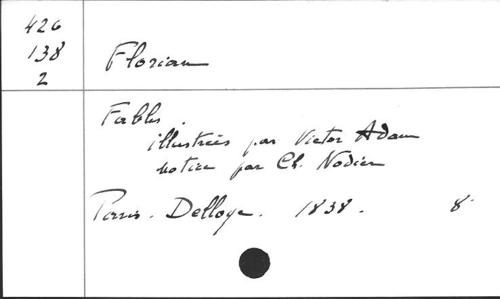 426
138
2
Florian
Fables.
illustrées par Victor Adam
notice par Ch. Nodier
Paris. Delloye. 1838. 8°